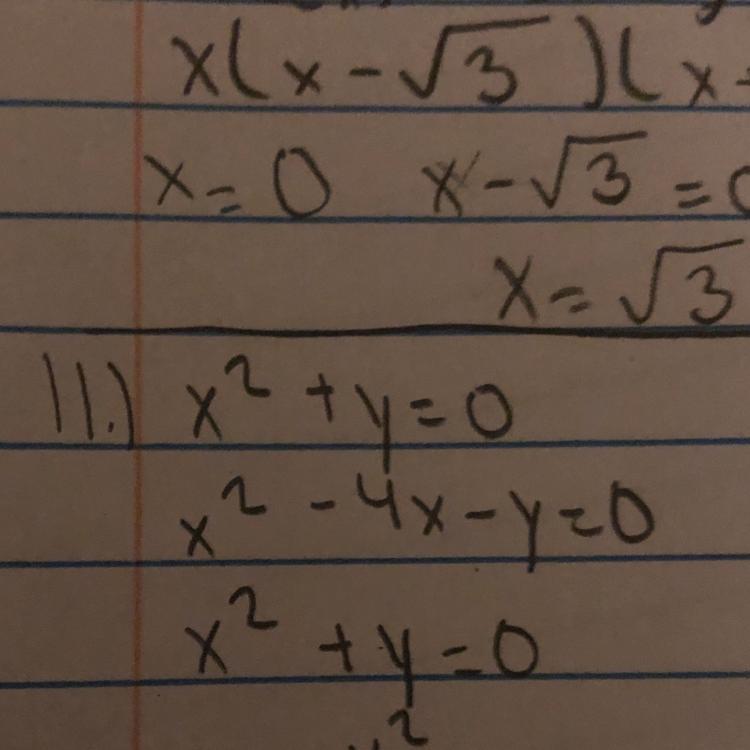 x(x-√3)(x-
x=0 x-√3=0
x=√3
11.) x²+y=0
x²-4x-y=0
x²+y=0